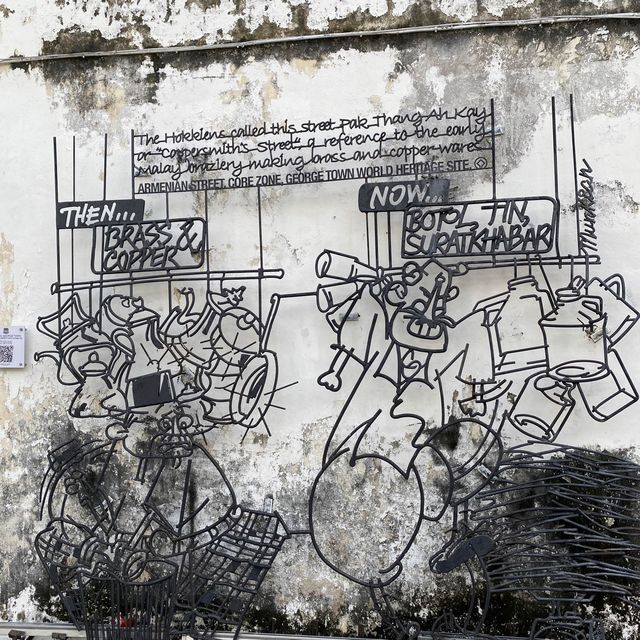 The Hokkiens called this street Pak Thang Ah Kay
or "Coppersmith's Street", a reference to the early
Malay braziery making brass and copper-wares.
ARMENIAN STREET, CORE ZONE, GEORGE TOWN WORLD HERITAGE SITE.
THEN...
BRASS &
COPPER
NOW...
BOTOL, TIN,
SURATKHABAR